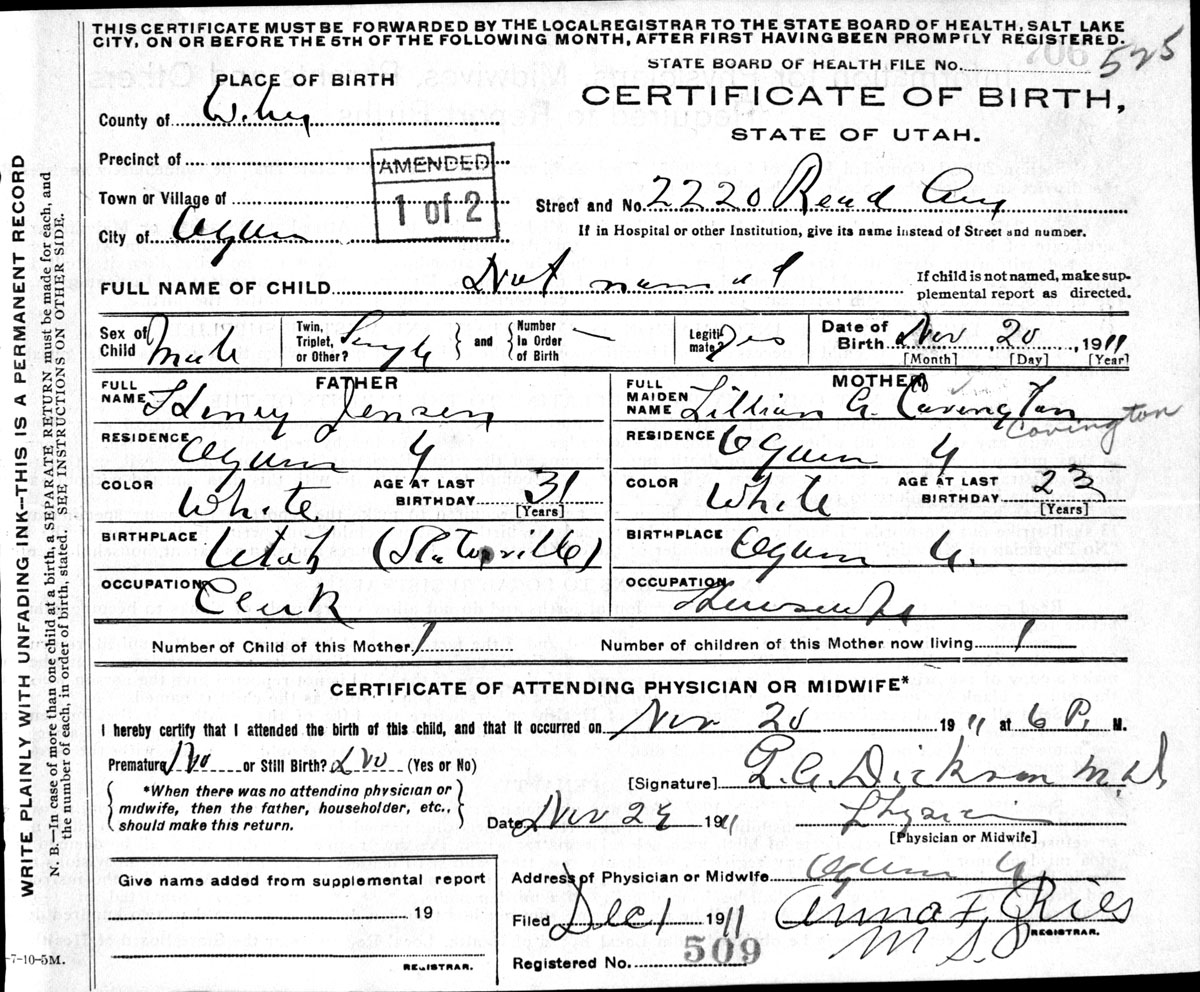 THIS CERTIFICATE MUST BE FORWARDED BY THE LOCAL REGISTRAR TO THE STATE BOARD OF HEALTH, SALT LAKE
CITY, ON OR BEFORE THE 5TH OF THE FOLLOWING MONTH, AFTER FIRST HAVING BEEN PROMPTLY REGISTERED.
STATE BOARD OF HEALTH FILE NO. 525
PLACE OF BIRTH
CERTIFICATE OF BIRTH,
STATE OF UTAH.
County of
Precinct of
AMENDED
1 of 2
Town or Village of
Street and No. 2220 Read Ave
City of Ogden
If in Hospital or other Institution, give its name instead of Street and number.
FULL NAME OF CHILD Not named
If child is not named, make sup-
plemental report as directed.
Sex of Child Male
Twin, Triplet, or Other? Single and Number In Order of Birth —
Legiti-mate? Yes
Date of Birth Nov 20, 1911
[Month] [Day] [Year]
FATHER
FULL NAME Henry Jensen
MOTHER
FULL MAIDEN NAME Lillian G. Cavington
Covington
RESIDENCE Ogden U
RESIDENCE Ogden U
COLOR White AGE AT LAST BIRTHDAY 31 [Years]
COLOR White AGE AT LAST BIRTHDAY 23 [Years]
BIRTHPLACE Utah (Slaterville)
BIRTHPLACE Ogden U.
OCCUPATION Clerk
OCCUPATION Housewife
Number of Child of this Mother 1
Number of children of this Mother now living 1
CERTIFICATE OF ATTENDING PHYSICIAN OR MIDWIFE*
I hereby certify that I attended the birth of this child, and that it occurred on Nov 20 1911 at 6 P. M.
Premature No or Still Birth? No (Yes or No)
[Signature] Dickson M.D.
*When there was no attending physician or
midwife, then the father, householder, etc.,
should make this return.
Date Nov 1911
Physician
[Physician or Midwife]
Give name added from supplemental report
19
REGISTRAR.
Address of Physician or Midwife Ogden U
Filed Dec 1 1911 Anna F. Ries
REGISTRAR.
Registered No. 509
-7-10-5M.
WRITE PLAINLY WITH UNFADING INK—THIS IS A PERMANENT RECORD
N. B.—In case of more than one child at a birth, a SEPARATE RETURN must be made for each, and
the number of each, in order of birth, stated. SEE INSTRUCTIONS ON OTHER SIDE.